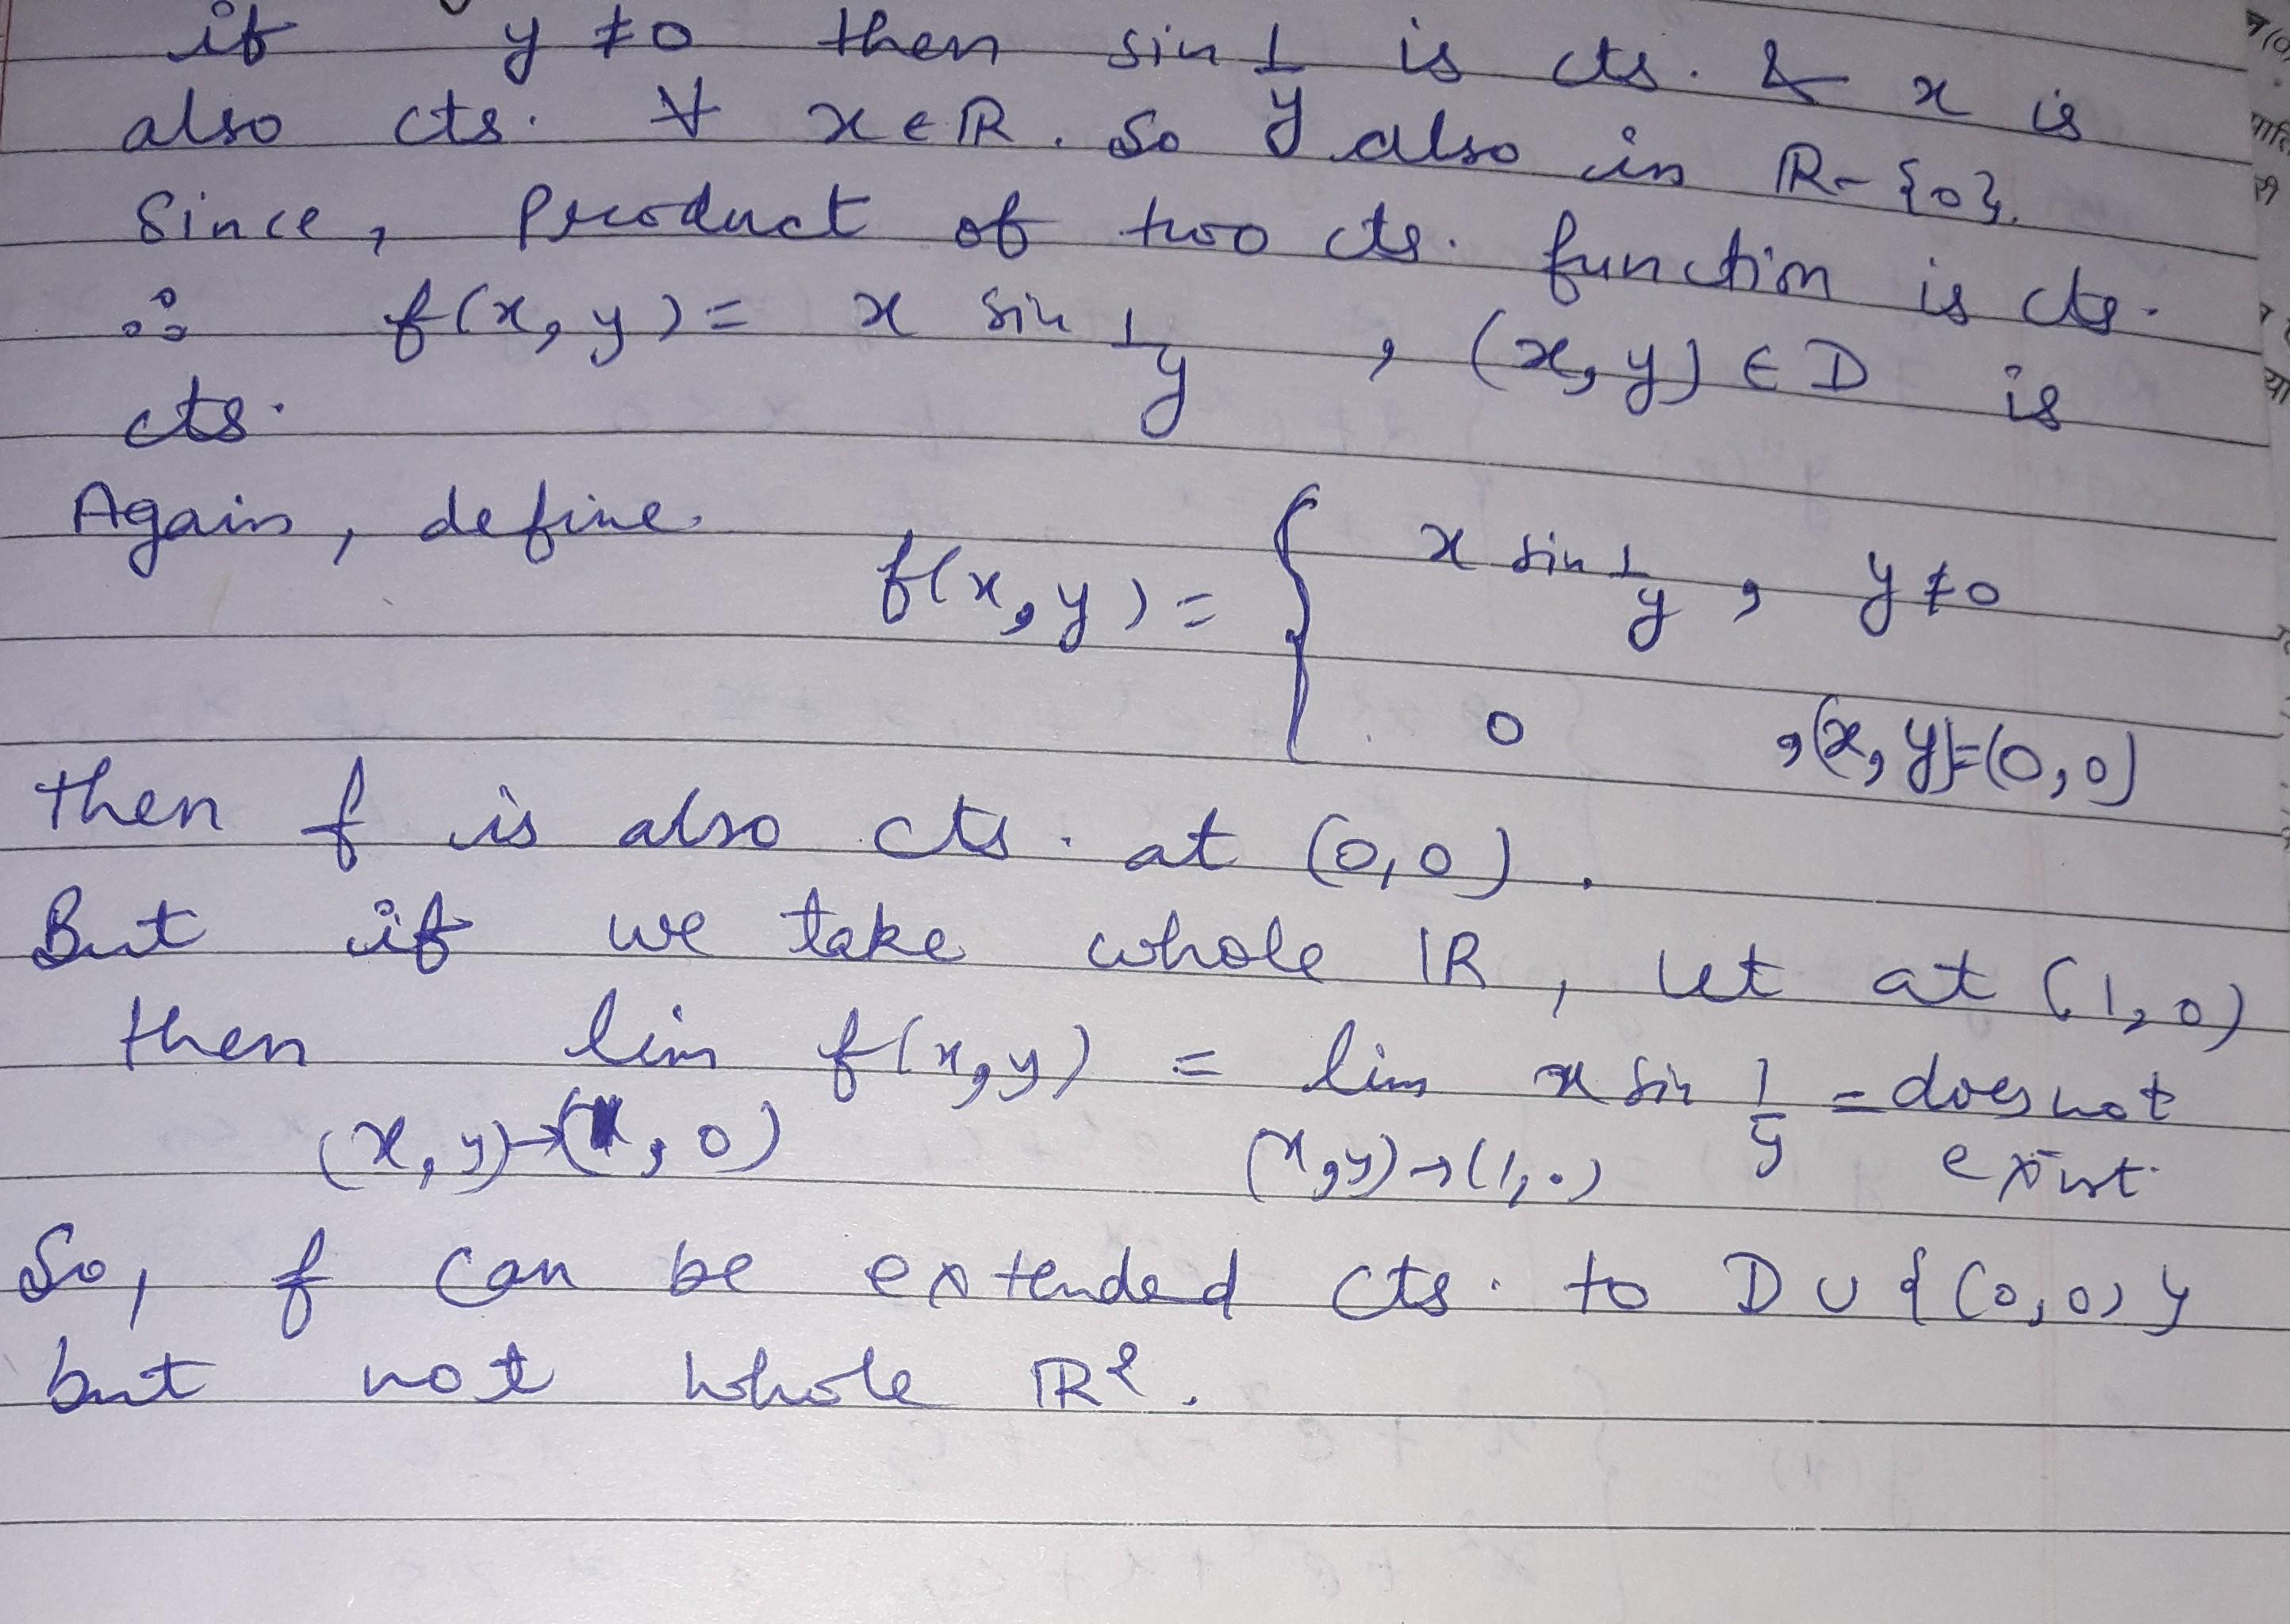 if y ≠ 0 then sin 1/y is cts. & x is
also cts. ∀ x ∈ ℝ. So also in ℝ - {0}.
Since, Product of two cts. function is cts.
∴ f(x, y) = x sin 1/y , (x, y) ∈ D is
cts.
Again, define
f(x, y) = { x sin 1/y , y ≠ 0
0 , (x, y) = (0, 0)
then f is also cts. at (0, 0) .
But if we take whole ℝ, let at (1, 0)
then lim f(x, y) = lim x sin 1/y = does not
(x, y) → ( , 0) (x, y) → (1, 0) exist.
So, f can be extended cts. to D ∪ {(0, 0)}
but not whole ℝ².